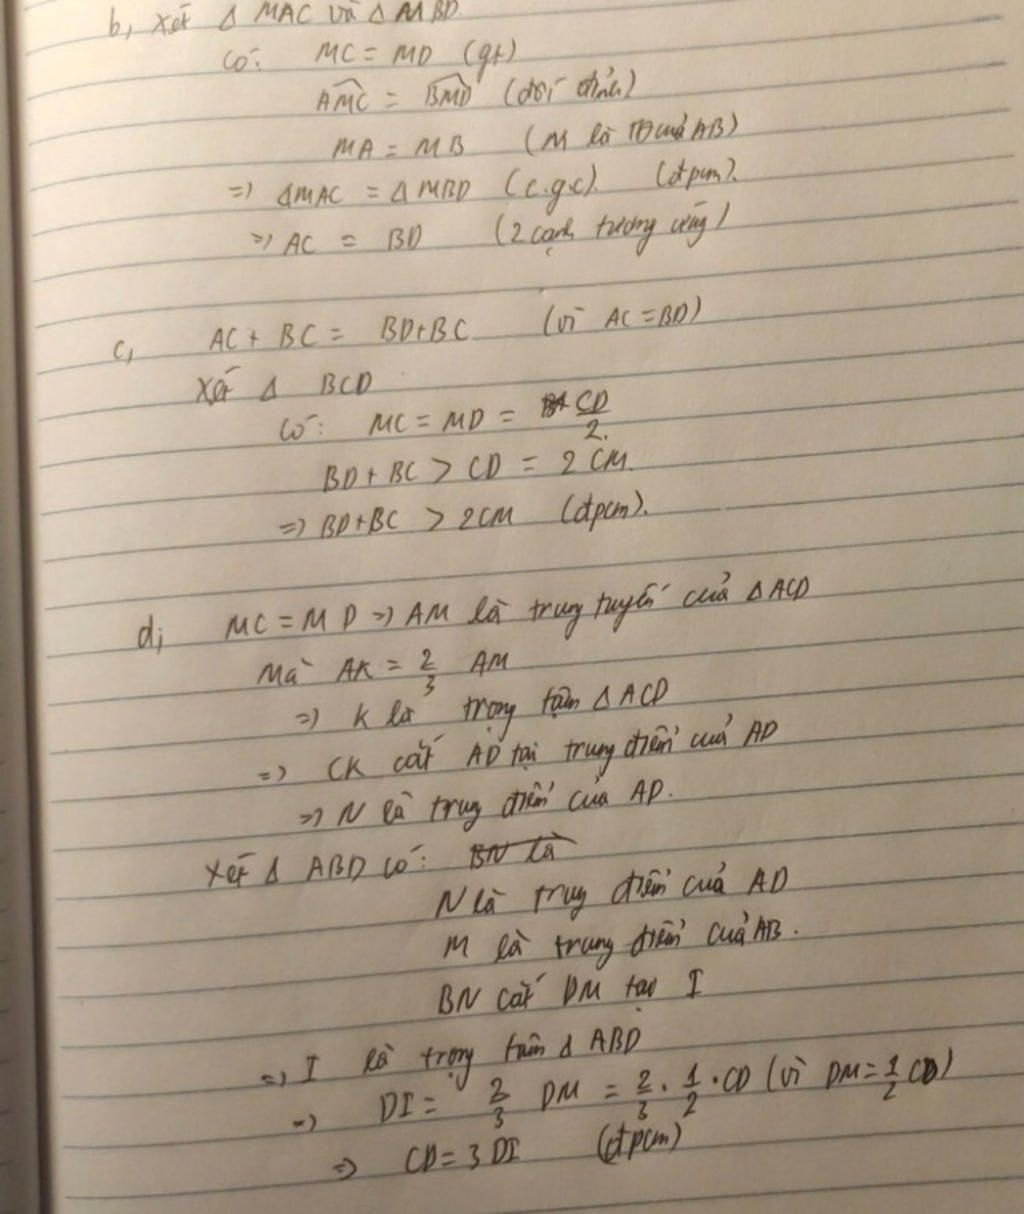 b, Xét Δ MAC và Δ MBD.
Có: MC = MD (gt)
AMC = BMD (đối đỉnh)
MA = MB (M là TĐ của AB)
=> ΔMAC = ΔMBD (c.g.c). (đpcm).
=> AC = BD (2 cạnh tương ứng)
c, AC + BC = BD+BC (vì AC = BD)
Xét Δ BCD
Có: MC = MD = CD/2.
BD + BC > CD = 2 CM.
=> BD+BC > 2CM (đpcm).
d, MC = MD => AM là trung tuyến của Δ ACD
Mà AK = 2/3 AM
=> K là trọng tâm Δ ACD
=> CK cắt AD tại trung điểm của AD
=> N là trung điểm của AD.
Xét Δ ABD có: BN là
N là trung điểm của AD
M là trung điểm của AB.
BN cắt DM tại I
=> I là trọng tâm Δ ABD
=> DI = 2/3 DM = 2/3 . 1/2 . CD (vì DM = 1/2 CD)
=> CD = 3 DI (đpcm)